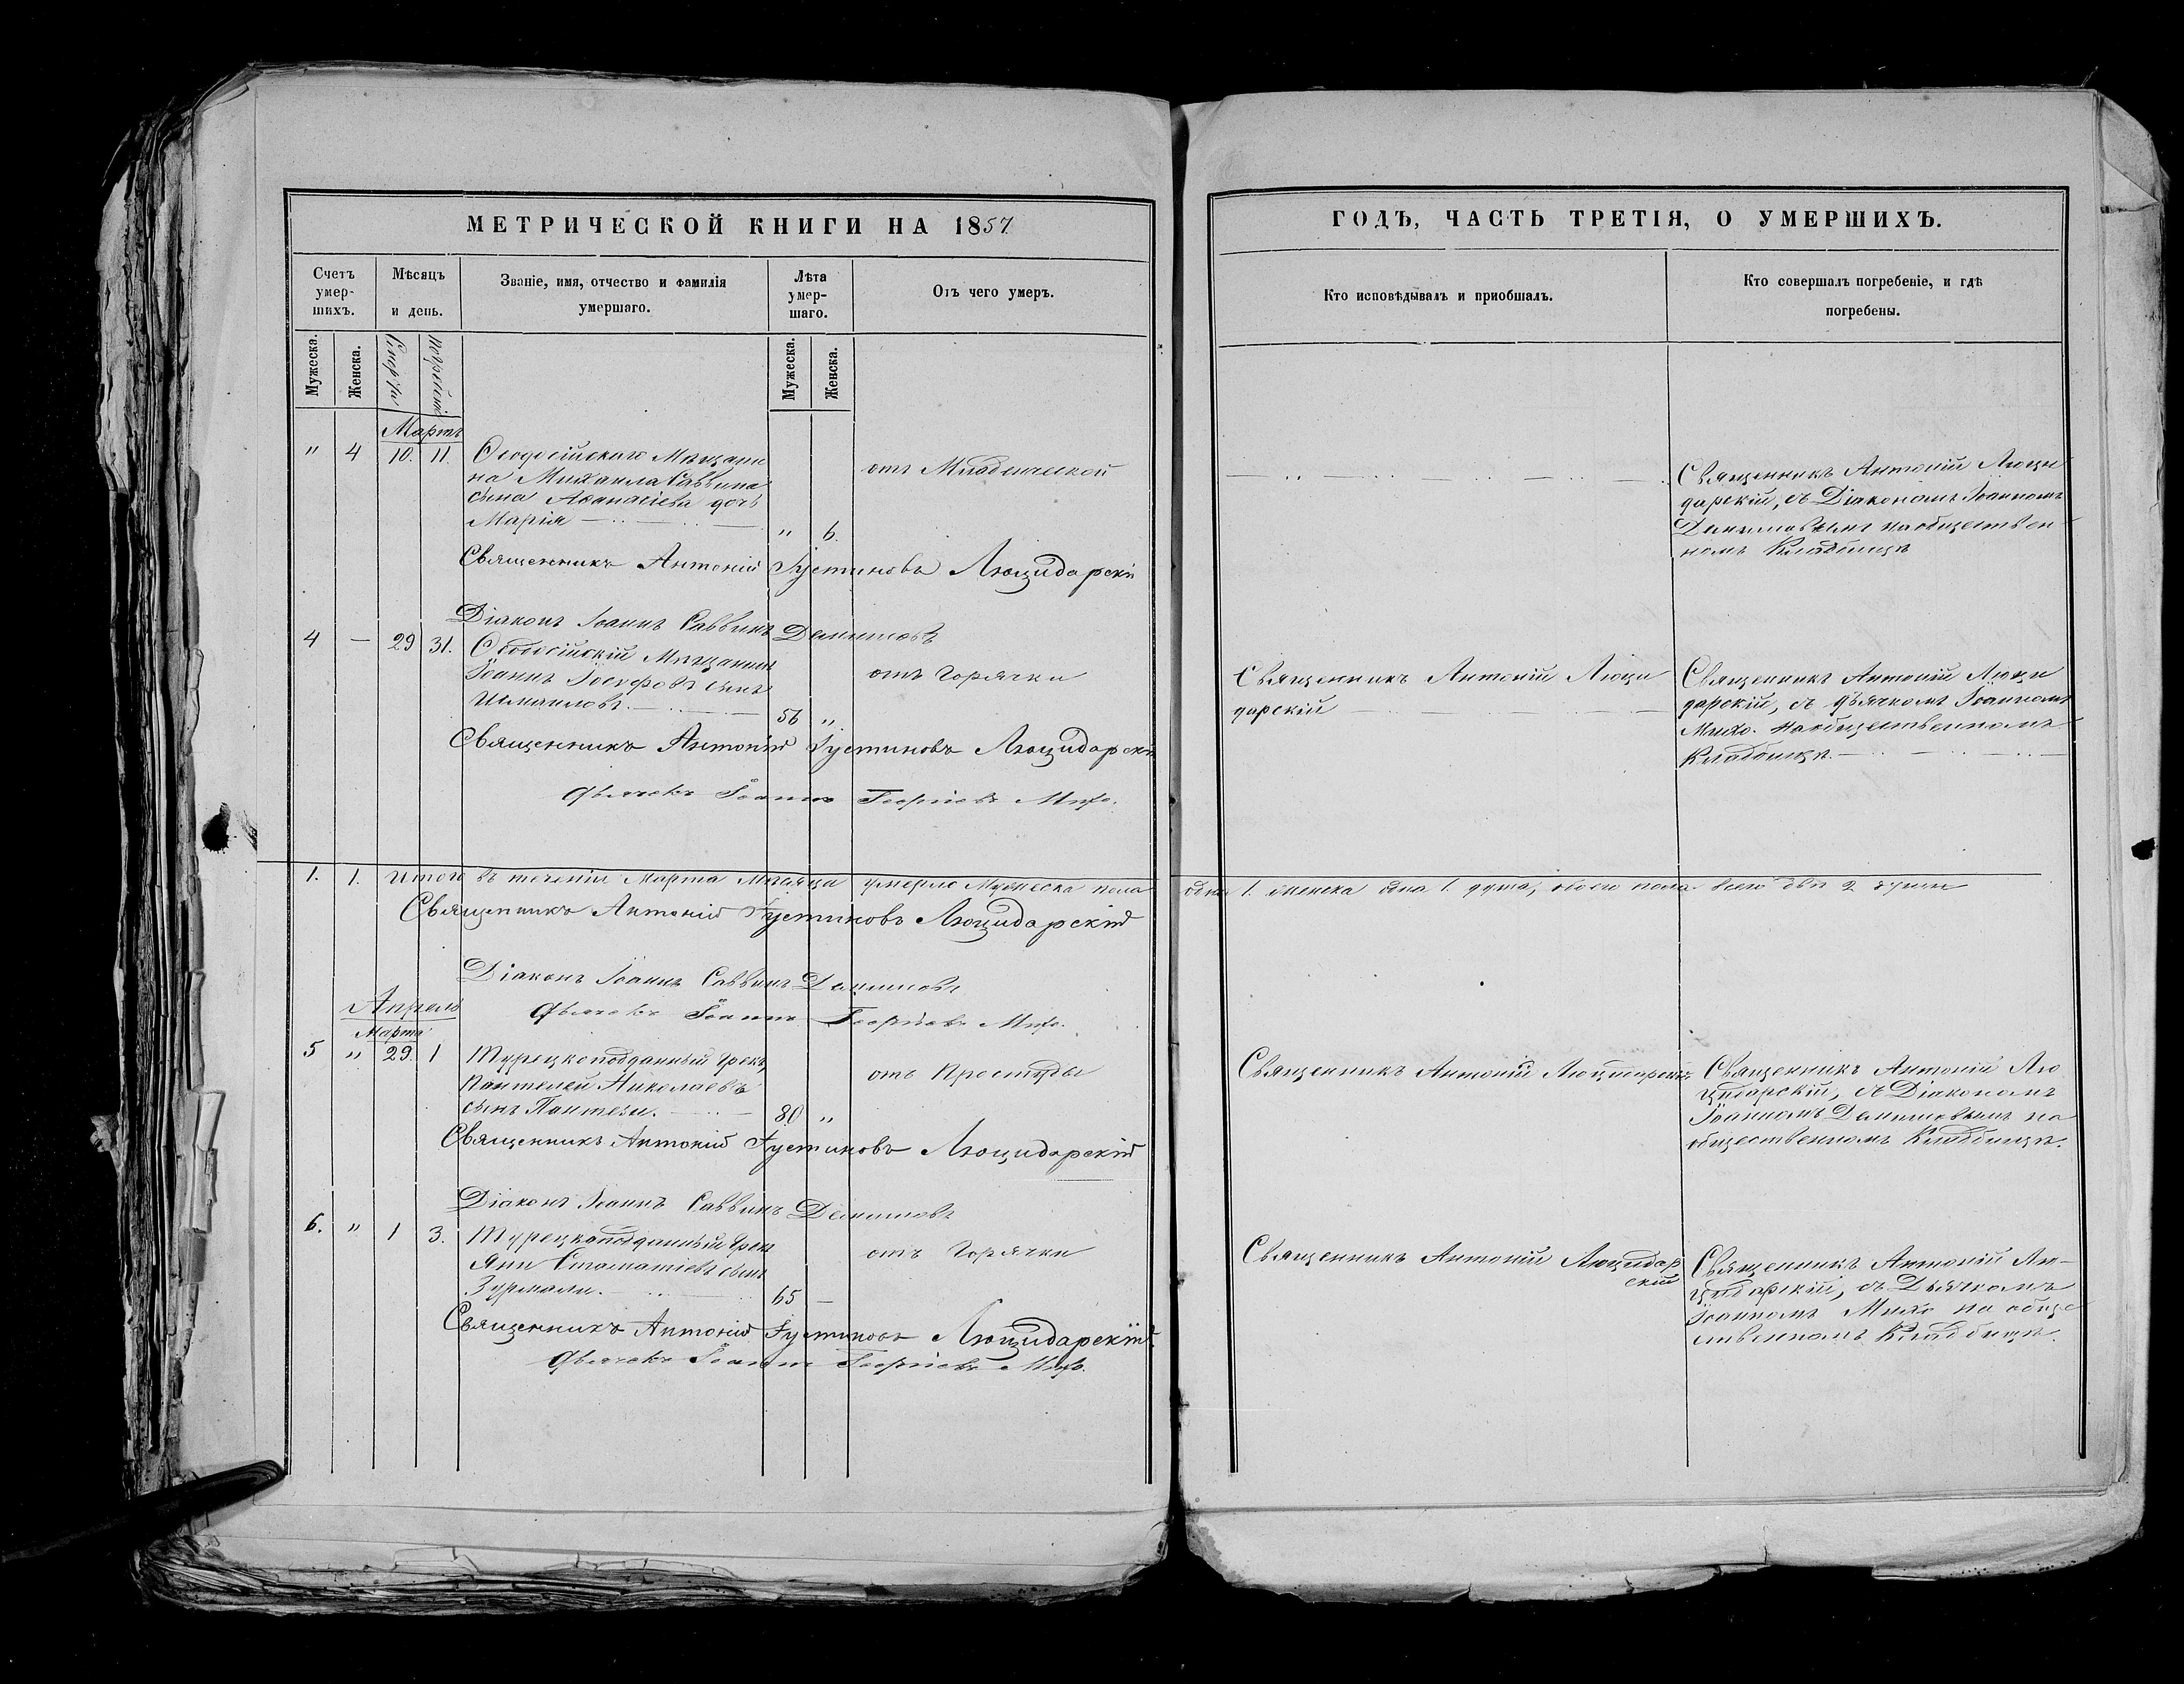 МЕТРИЧЕСКОЙ КНИГИ НА 1857
Счетъ умер- шихъ.
Мѣсяцъ и день.
Званіе, имя, отчество и фамилія умершаго.
Лѣта умер- шаго.
Отъ чего умеръ.
Мужеска.
Женска.
Смерти
Погребенія
Мужеска.
Женска.
Мартъ
" 4 10. 11. Ѳеодосійскаго Мѣщани
на Михаила Саввина
сына Аѳанасіева дочь
Марія
" 6.
отъ Младенческой
Священникъ Антоній Іустиновъ Люцидарскій
Діаконъ Іоаннъ Саввинъ
4 — 29 31. Ѳеодосійскій Мѣщанинъ
Іоаннъ Іосифовъ сынъ
Исмаиловъ.
56 "
отъ Горячки
Священникъ Антоній Іустиновъ Люцидарскій
Дьячекъ Іоаннъ Георгіевъ Михо.
1. 1. Итого въ теченіи Марта Мѣсяца умерло Мужеска пола
Священникъ Антоній Іустиновъ Люцидарскій
Діаконъ Іоаннъ Саввинъ
Дьячекъ Іоаннъ Георгіевъ Михо.
Апрель
Марта
5 " 29. 1 Турецкоподданный Грекъ
Пантелей Николаевъ
сынъ
80 "
отъ Простуды
Священникъ Антоній Іустиновъ Люцидарскій
Діаконъ Іоаннъ Саввинъ
6. " 1 3. Турецкоподданный Грекъ
Яни Стаматіевъ сынъ
65 —
отъ Горячки
Священникъ Антоній Іустиновъ Люцидарскій.
Дьячекъ Іоаннъ Георгіевъ Михо.
ГОДЪ, ЧАСТЬ ТРЕТІЯ, О УМЕРШИХЪ.
Кто исповѣдывалъ и пріобщалъ.
Кто совершалъ погребеніе, и гдѣ
погребены.
Священникъ Антоній Люци
дарскій, съ Діакономъ Іоанномъ
на обществен
номъ Кладбищѣ
Священникъ Антоній Люци
дарскій
Священникъ Антоній Люци
дарскій, съ дьячкомъ Іоанномъ
Михо. на общественномъ
Кладбищѣ.
одна 1. женска одна 1. душа, обоего пола всего двѣ 2 души
Священникъ Антоній Люцидарскій
Священникъ Антоній Лю
цидарскій, съ Діакономъ
Іоанномъ на
общественномъ Кладбищѣ.
Священникъ Антоній Люцидар
скій
Священникъ Антоній Лю-
цидарскій, съ Дьячкомъ
Іоанномъ Михо на обще
ственномъ Кладбищѣ.